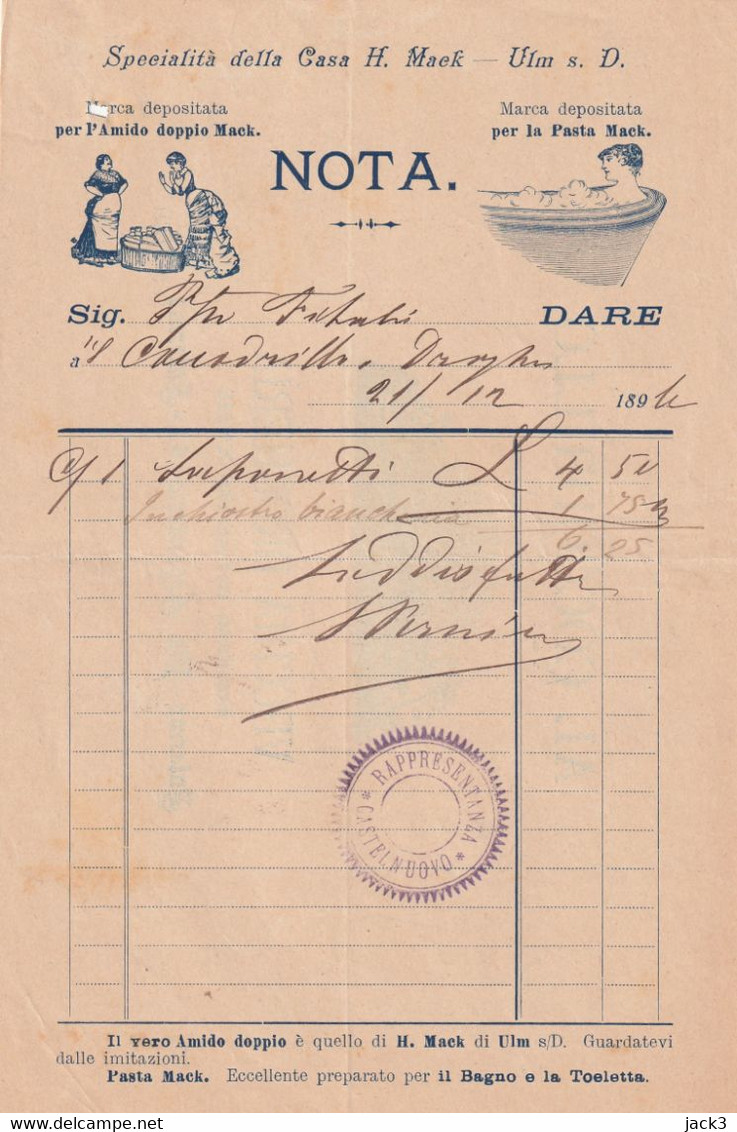 Specialità della Casa H. Mack — Ulm s. D.
Marca depositata
per l'Amido doppio Mack.
Marca depositata
per la Pasta Mack.
NOTA.
Sig. DARE
a
21/12 1894
C/1 Saponetti L 4 50
Inchiostro biancheria 1 75
6. 25
Soddisfatto
* RAPPRESENTANZA *
CASTELNUOVO
Il vero Amido doppio è quello di H. Mack di Ulm s/D. Guardatevi
dalle imitazioni.
Pasta Mack. Eccellente preparato per il Bagno e la Toeletta.
jack3